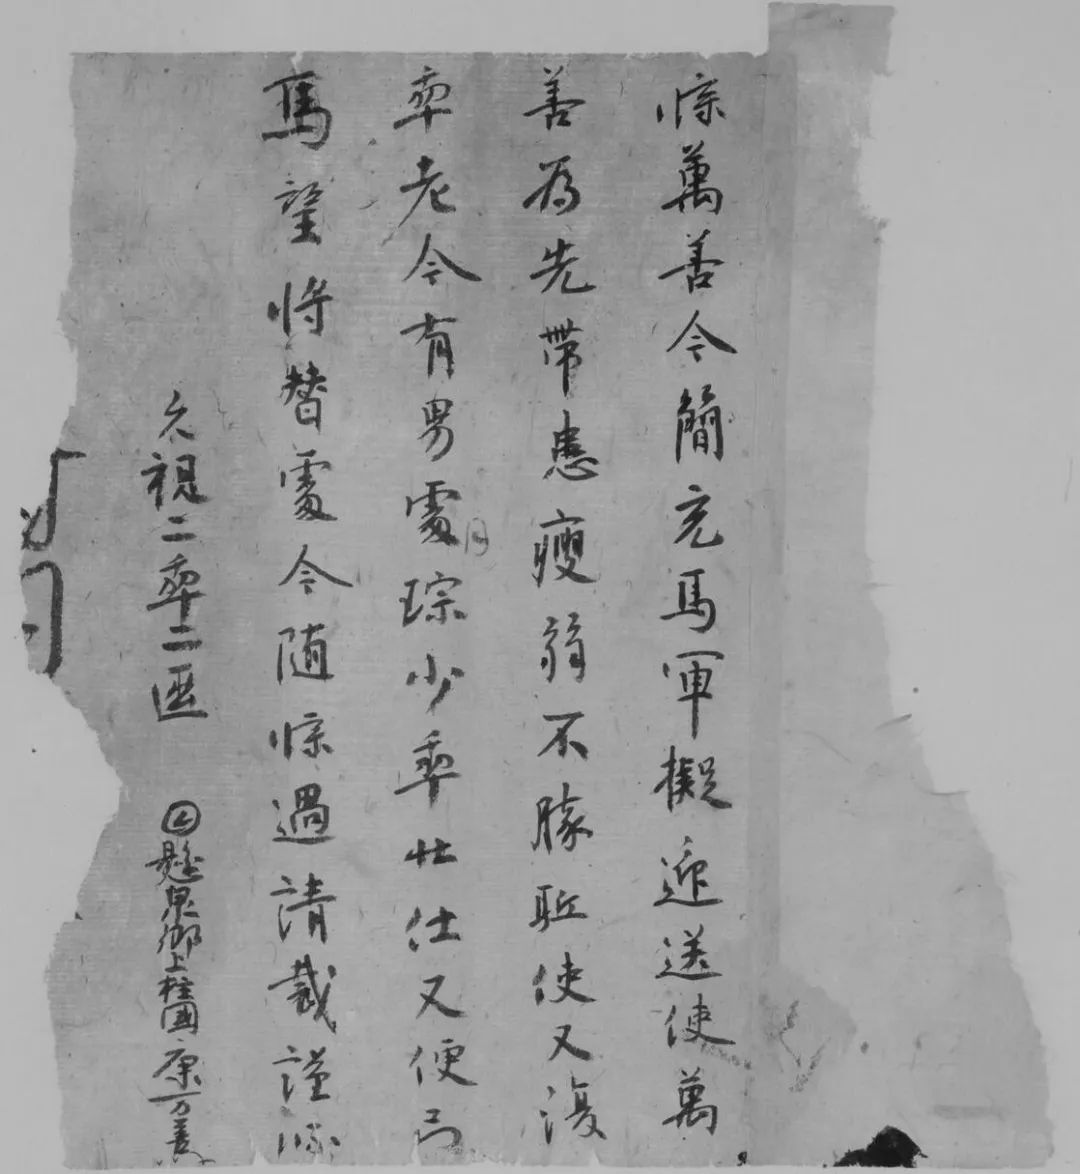 牒萬善今簡充馬軍擬迎送使萬
善為先帶患瘦弱不勝駈使又復
𠡦老今有男處琮少𠡦壯仕又便弓
馬望將替處今隨牒過請裁謹牒
久視二𠡦二𠥱 𡆠懸泉鄉上柱國康万善